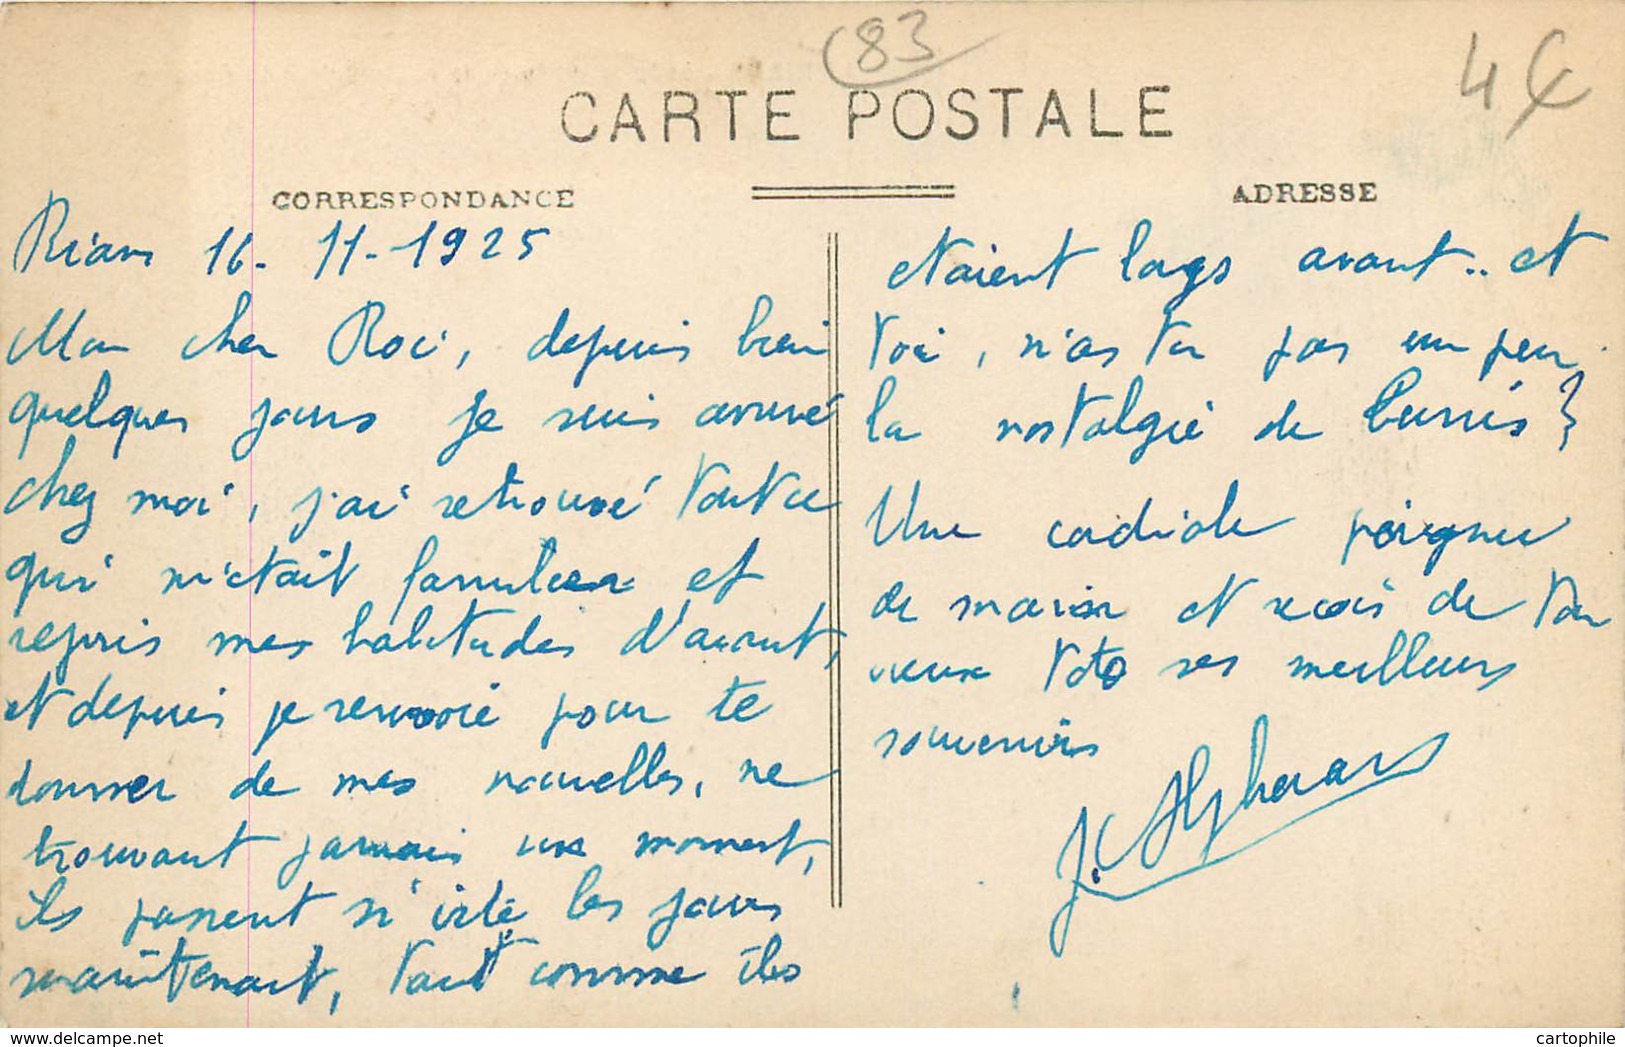 83
4€
CARTE POSTALE
CORRESPONDANCE
ADRESSE
Rians 16-11-1925
Mon cher Roci, depuis bien
quelques jours je suis arrivé
chez moi, j'ai retrouvé tout ce
qui m'était familier et
repris mes habitudes d'avant,
et depuis je renvoie pour te
donner de mes nouvelles, ne
trouvant jamais un moment,
ils passent si vite les jours
maintenant, tout comme ils
etaient longs avant.. et
toi, n'as tu pas un peu
la nostalgie de Tunis?
Une cordiale poignee
de main et recois de ton
vieux Toto ses meilleurs
souvenirs
J.
cartophile